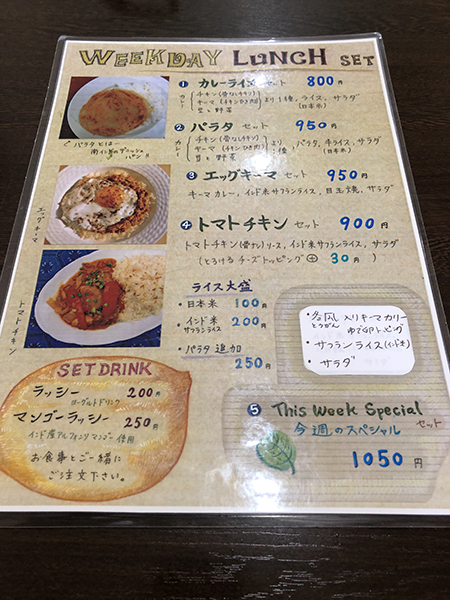 WEEKDAY LUNCH SET
① カレーライス セット 800円
カレー
チキン(骨なしチキン)
キーマ(チキンひき肉)
豆と野菜
より1種、ライス、サラダ
(日本米)
② パラタ セット 950円
カレー
チキン(骨なしチキン)
キーマ(チキンひき肉)
豆と野菜
より1種、パラタ、半ライス、サラダ
(日本米)
パラタとは…
南インドのデニッシュ
パン!!
③ エッグキーマ セット 950円
キーマカレー、インド米サフランライス、目玉焼、サラダ
エッグキーマ
④ トマトチキン セット 900円
トマトチキン(骨ナシ)ソース、インド米サフランライス、サラダ
(とろける チーズトッピング ⊕ 30円)
トマトチキン
ライス大盛
・日本米 100円
・インド米 200円
サフランライス
・パラタ 追加
250円
・冬瓜入りキーマカリー
とうがん ゆで卵トッピング
・サフランライス(インド米)
・サラダ
SET DRINK
ラッシー 200円
ヨーグルトドリンク
マンゴーラッシー 250円
インド産アルフォンソマンゴー使用
お食事とご一緒に
ご注文下さい。
⑤ This Week Special
今週のスペシャル セット
1050円